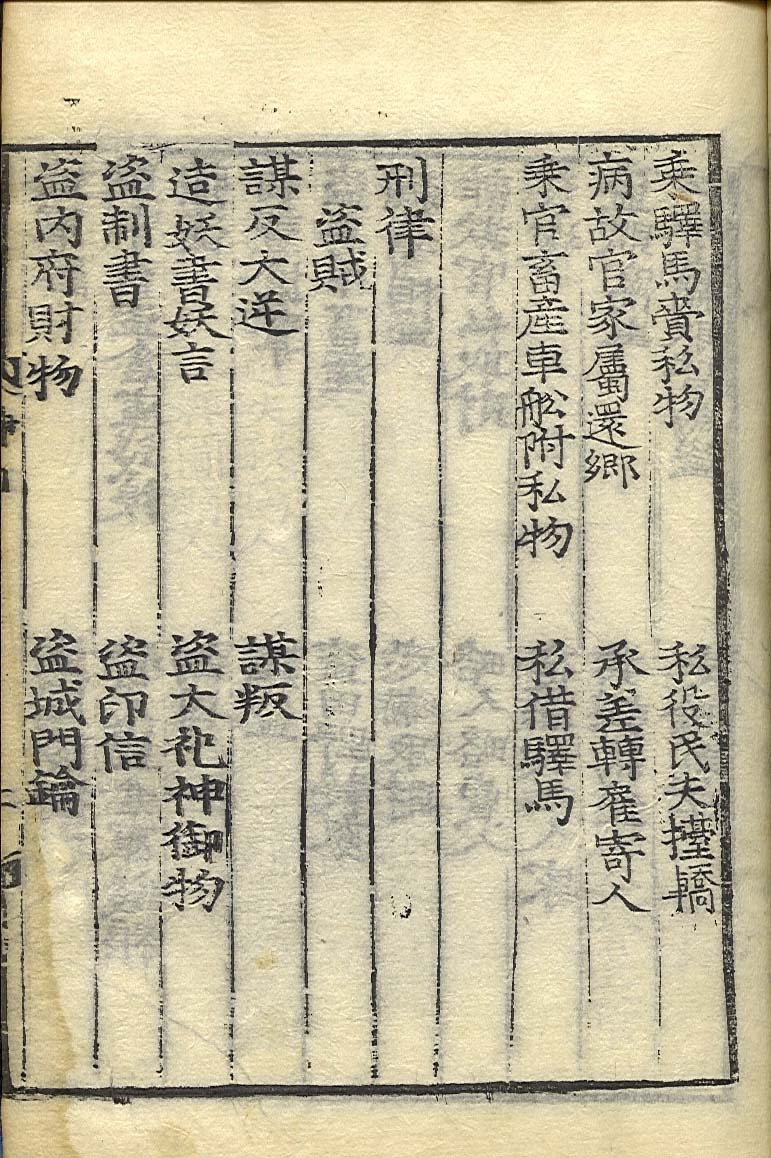 乘驛馬賫私物　私役民夫擡轎
病故官家屬還鄉　承差轉雇寄人
乘官畜產車舩附私物　私借驛馬
刑律
盜賊
謀反大逆　謀叛
造妖書妖言　盜大祀神御物
盜制書　盜印信
盜內府財物　盜城門鑰